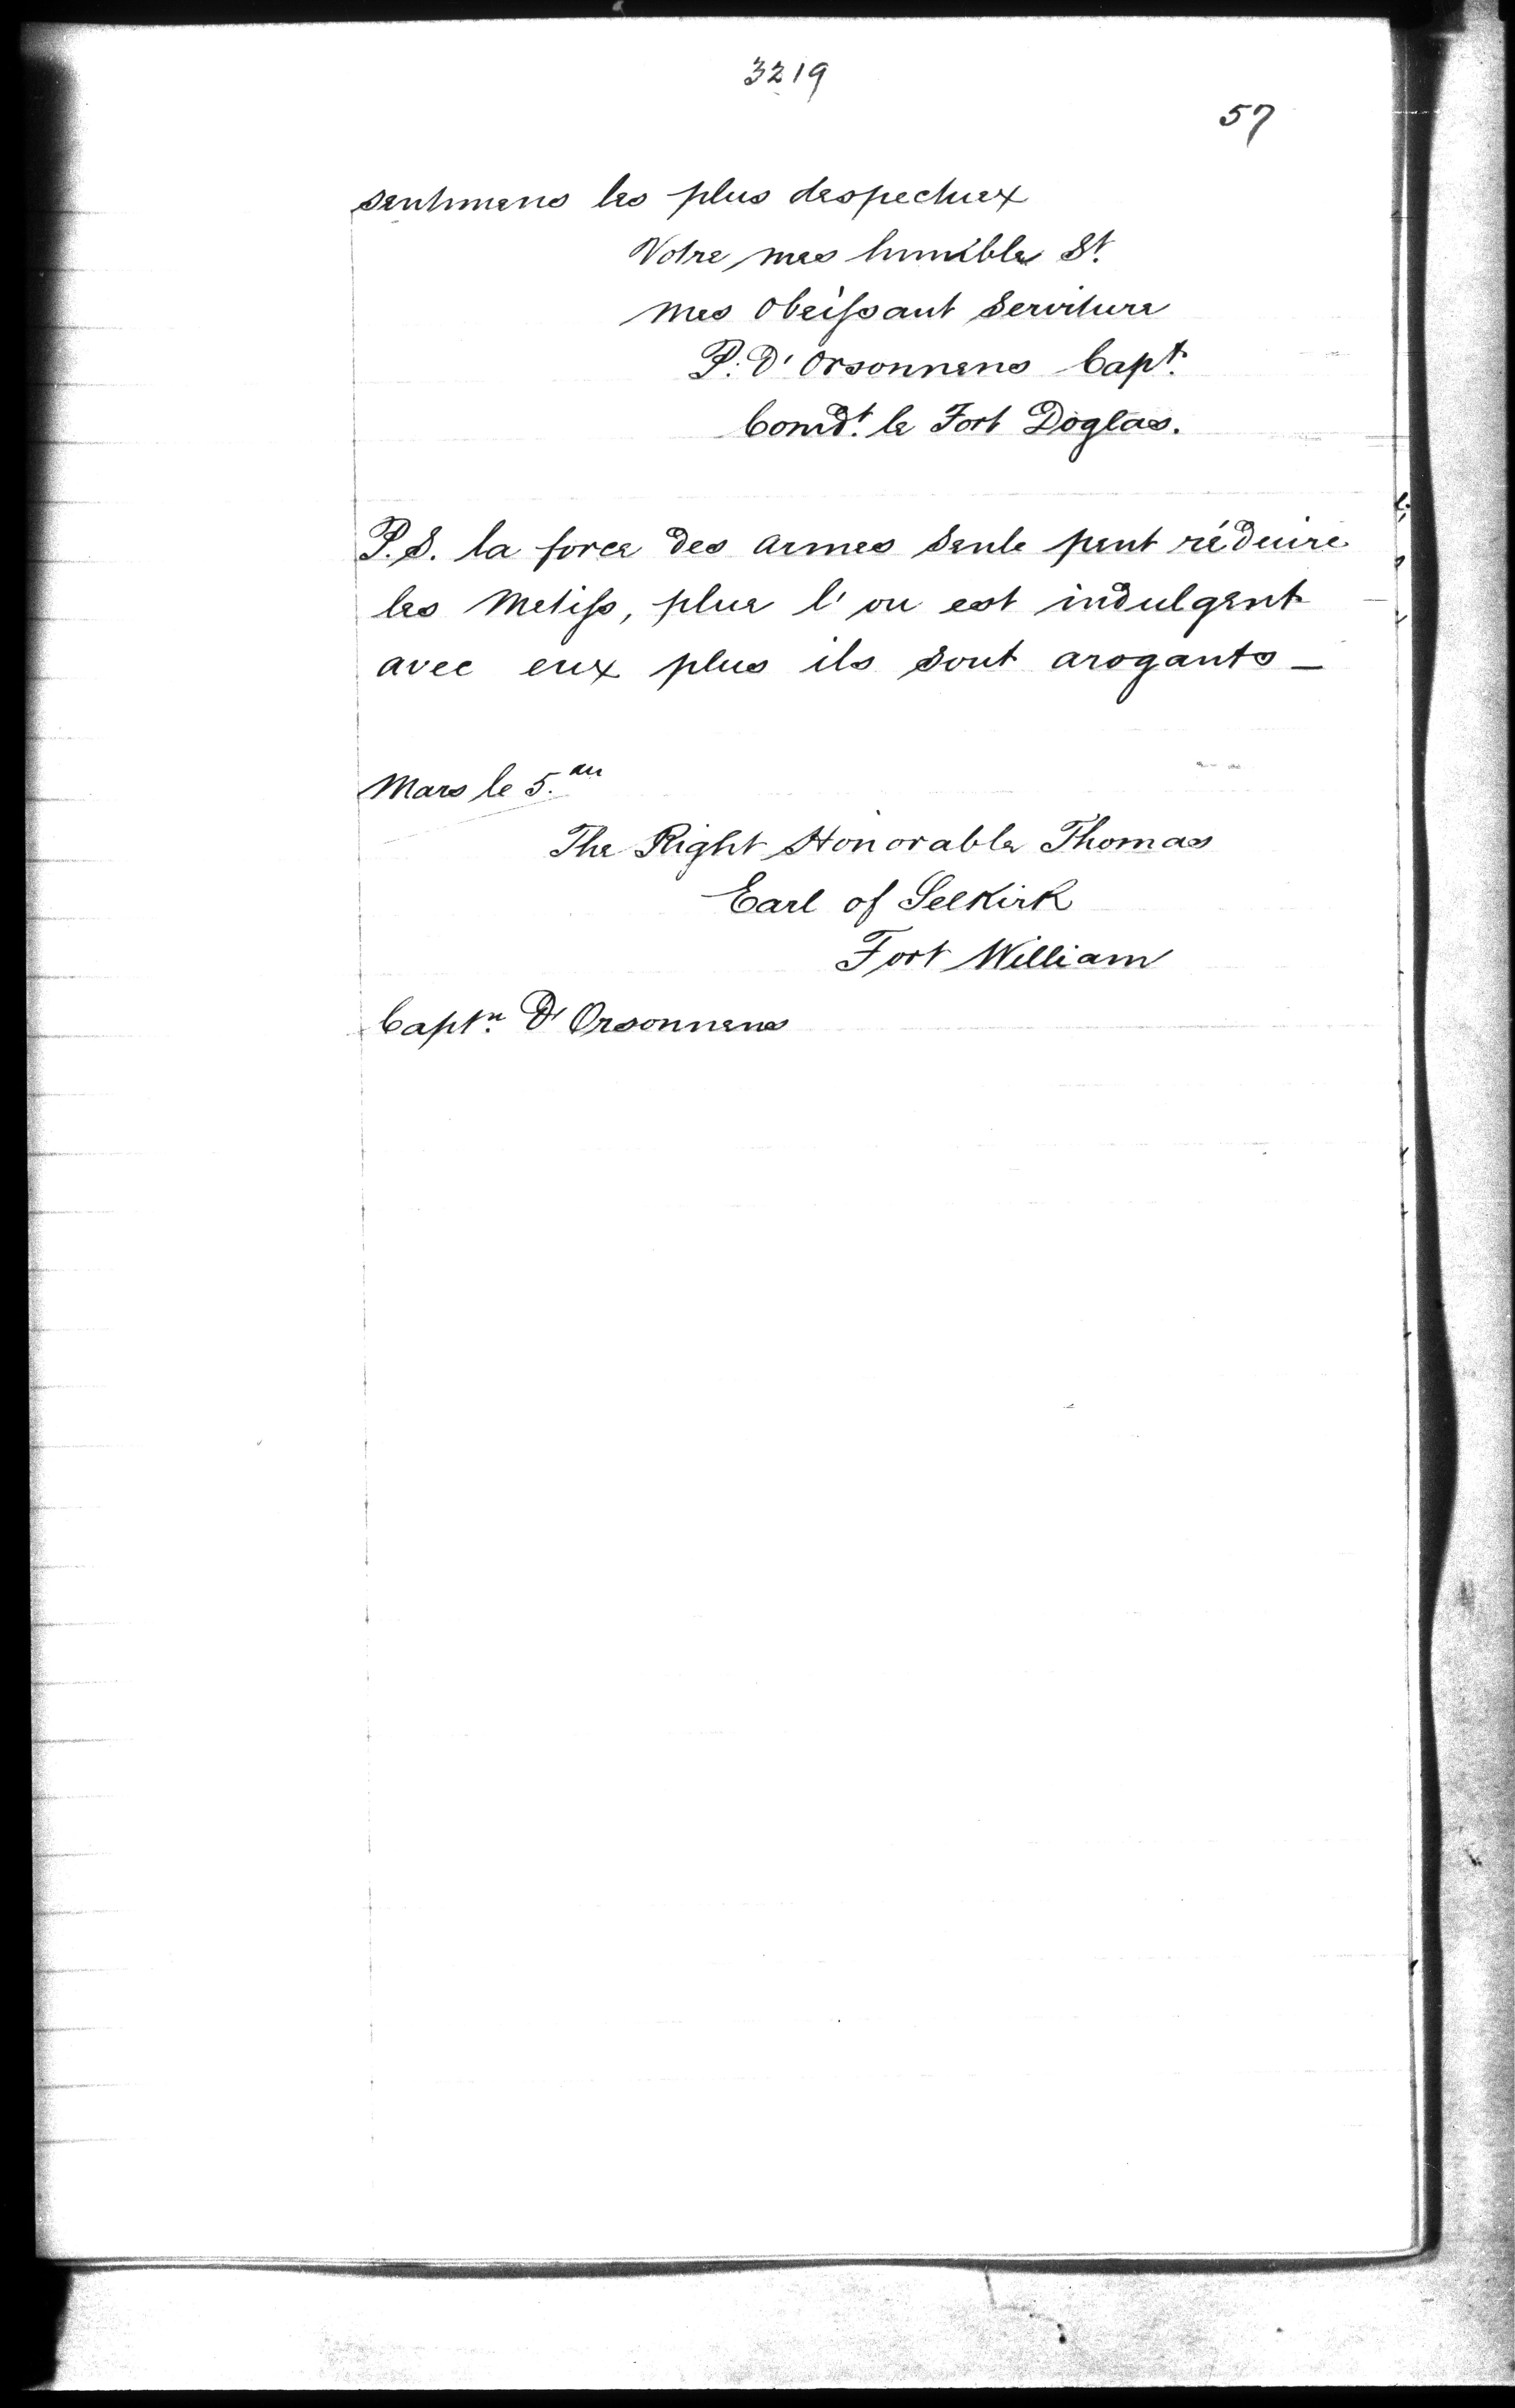 3219
57
sentimens les plus despectuex
Votre mes humible St.
mes Obeissant Serviture
P. D'Orsonnens Capt.
Comdt. le Fort Doglas.
P.S. la force des armes seule peut réduire
les Metiss, plus l'on est indulgent
avec eux plus ils sont arogants _
Mars le 5.au
The Right Honorable Thomas
Earl of Selkirk
Fort William
Captn. D'Orsonnens